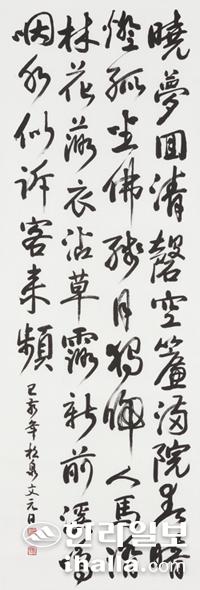 曉夢回清磬空簾滿院春暗
燈孤坐佛殘月獨歸人馬滑
林花落衣沾草露新前溪嗚
咽水似訴客來頻 己亥年松泉文元日
한라일보
ihalla.com